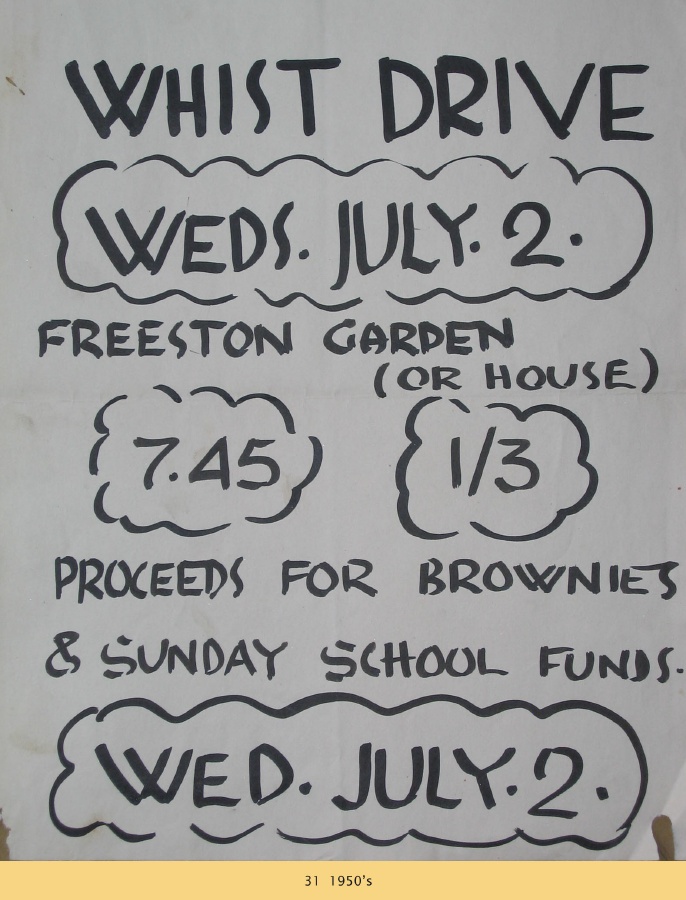 WHIST DRIVE
WEDS. JULY. 2.
FREESTON GARDEN
(OR HOUSE)
7.45 1/3
PROCEEDS FOR BROWNIES
& SUNDAY SCHOOL FUNDS.
WED. JULY. 2.
31 1950's